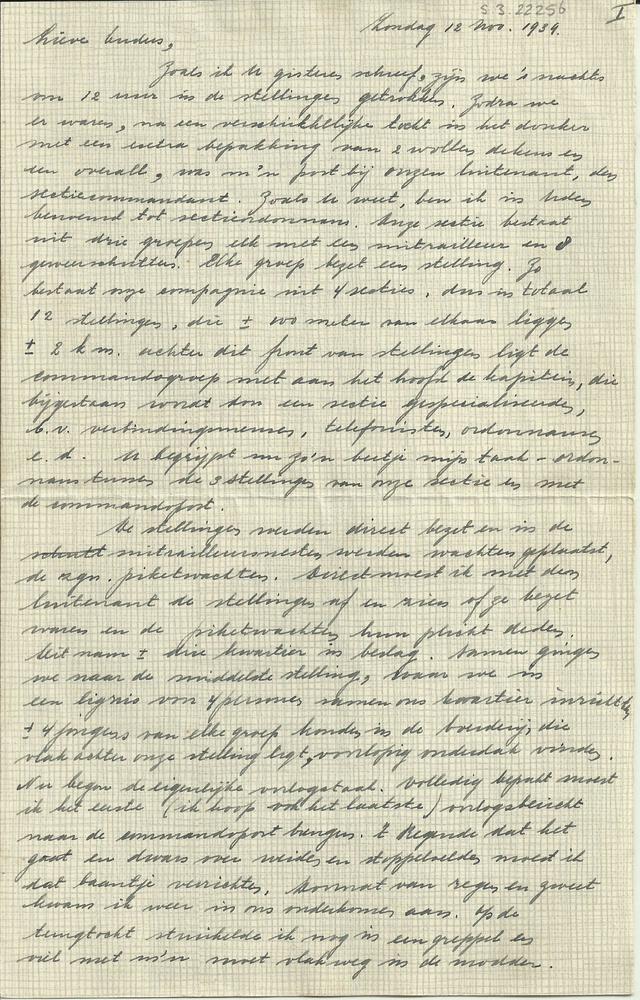 S.3.22256
I
Zondag 12 Nov. 1939.
Lieve Ouders,
Zoals ik U gisteren schreef, zijn we 's nachts
om 12 uur in de stellingen getrokken. Zodra we
er waren, na een verschrikkelijke tocht in het donker
met een extra bepakking van 2 wollen dekens en
een overall, was m'n post bij onzen luitenant, den
sectiecommandant. Zoals U weet, ben ik in Leden
benoemd tot sectieordonnans. Onze sectie bestaat
uit drie groepen elk met een mitrailleur en 8
geweerschutters. Elke groep bezet een stelling. Zo
bestaat onze compagnie uit 4 secties, dus in totaal
12 stellingen, die ± 100 meter van elkaar liggen
± 2 km. achter dit front van stellingen ligt de
commandogroep met aan het hoofd de kapitein, die
bijgestaan wordt door een sectie gespecialiseerden,
b.v. verbindingsmensen, telefonisten, ordonnansen
e.d. U begrijpt nu zo'n beetje mijn taak - ordon-
nans tussen de 3 stellingen van onze sectie en met
de commandopost.
De stellingen werden direct bezet en in de
mitrailleursnesten werden wachten geplaatst,
de zgn. piketwachten. Direct moest ik met den
luitenant de stellingen af en zien of ze bezet
waren en de piketwachten hun plicht deden.
Dit nam ± drie kwartier in beslag. Samen gingen
we naar de middelste stelling, waar we in
een lignis van 4 personen samen ons kwartier inrichtten
± 4 jongens van elke groep konden in de boerderij, die
vlak achter onze stelling ligt, voorlopig onderdak vinden.
Nu begon de eigenlijke oorlogstaak. Volledig bepakt moest
ik het eerste (ik hoop ook het laatste) oorlogsbericht
naar de commandopost brengen. 't Regende dat het
goot en dwars over weiden en stoppelvelden moest ik
dat baantje verrichten. Kormat van regen en zweet
kwam ik weer in ons onderkomen aan. Op de
terugtocht struikelde ik nog in een greppel en
viel met m'n snoet vlakweg in de modder.